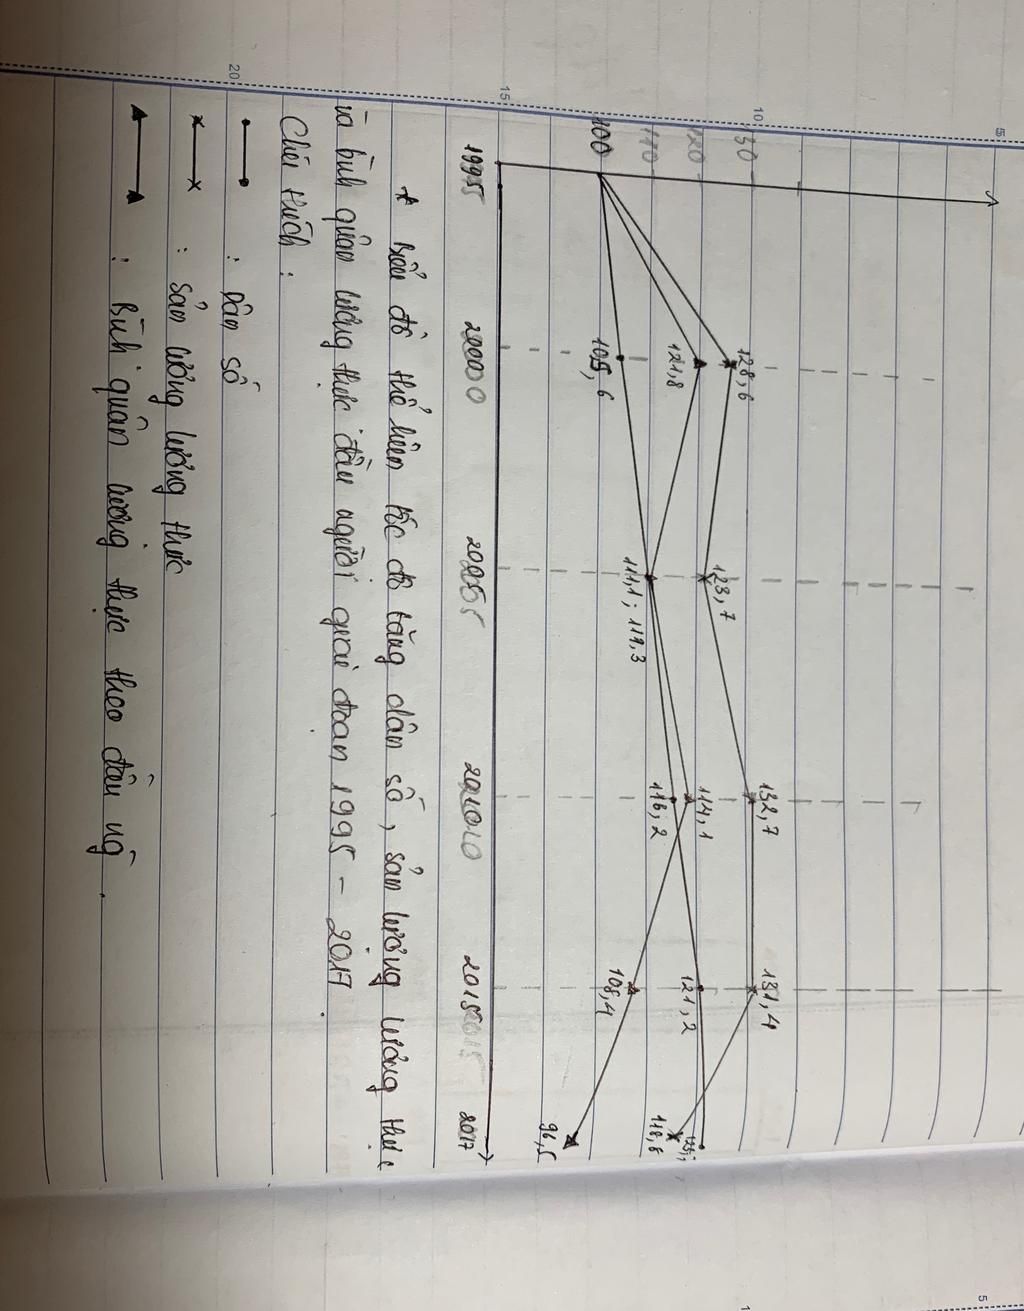 5
10
15
20
130
120
110
100
128,6
123,7
132,7
131,4
121,8
114,1
121,2
118,6
105,6
111,1 ; 111,3
116,2
108,4
96,5
1995 2000 2005 2010 2015 2017
* Biểu đồ thể hiện tốc độ tăng dân số, sản lượng lương thực
và bình quân lương thực đầu người giai đoạn 1995 - 2017.
Chú thích :
: Dân số
: sản lượng lương thực
: Bình quân lương thực theo đầu ng̃ .
5